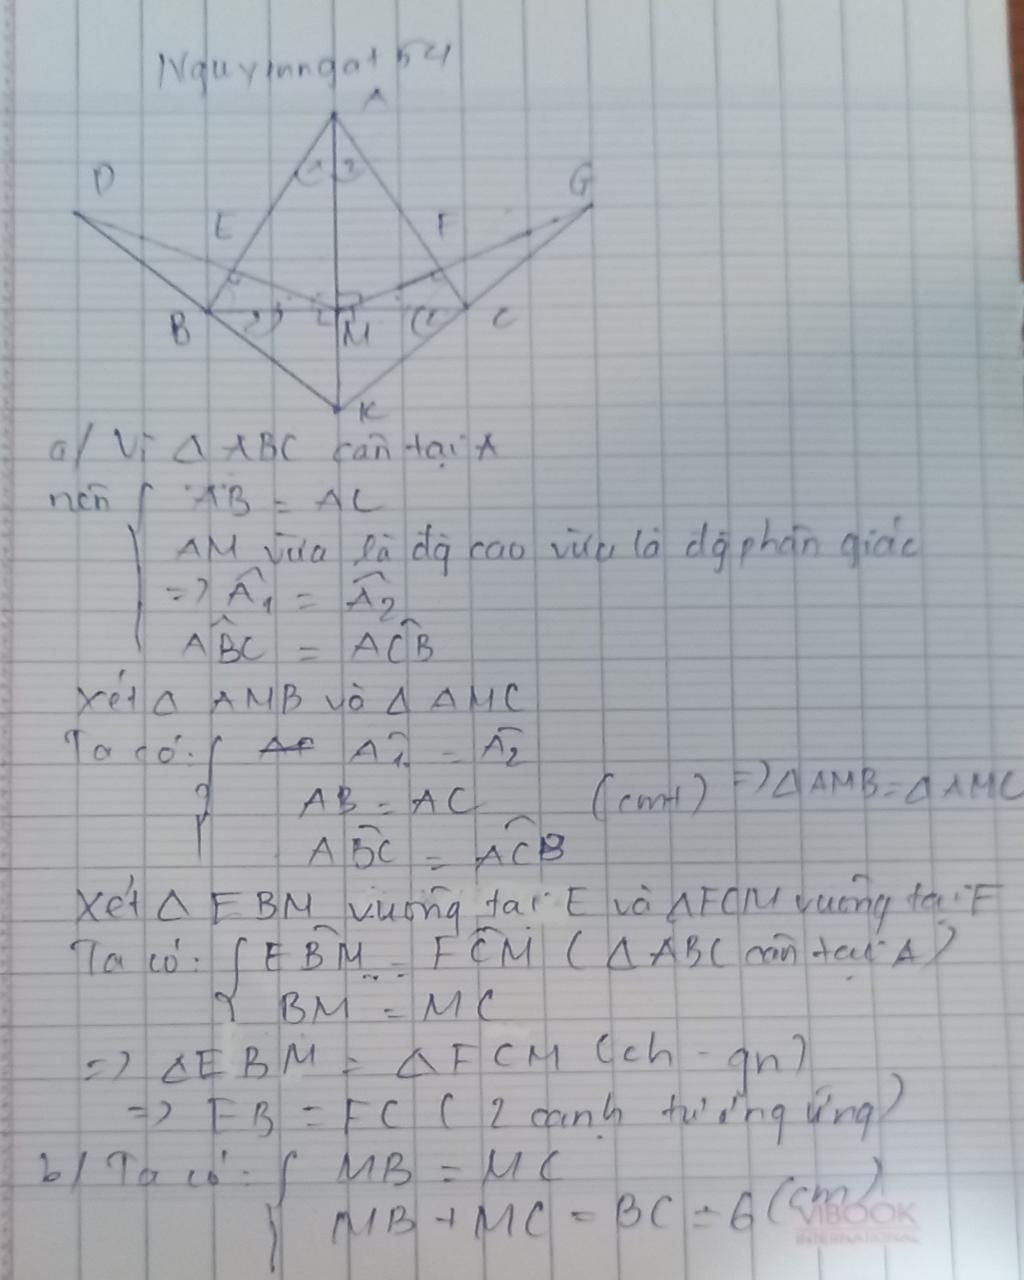 Nguyinngat 54
A
D
G
1 2
E
F
B
M
C
K
a/ Vì Δ ABC cân tại A
nên { AB = AC
AM vừa là đg cao vừa là đg phân giác
=> Â1 = Â2
AB̂C = AĈB
Xét Δ AMB và Δ AMC
Ta có: { Â1 = Â2
AB = AC (cmt) => Δ AMB = Δ AMC
AB̂C = AĈB
Xét Δ EBM vuông tại E và Δ FCM vuông tại F
Ta có: { EB̂M = FĈM ( Δ ABC cân tại A)
BM = MC
=> Δ EBM = Δ FCM (ch - gn)
=> EB = FC ( 2 cạnh tương ứng)
b/ Ta có: { MB = MC
MB + MC = BC = 6 (cm)
VIBOOK
INTERNATIONAL